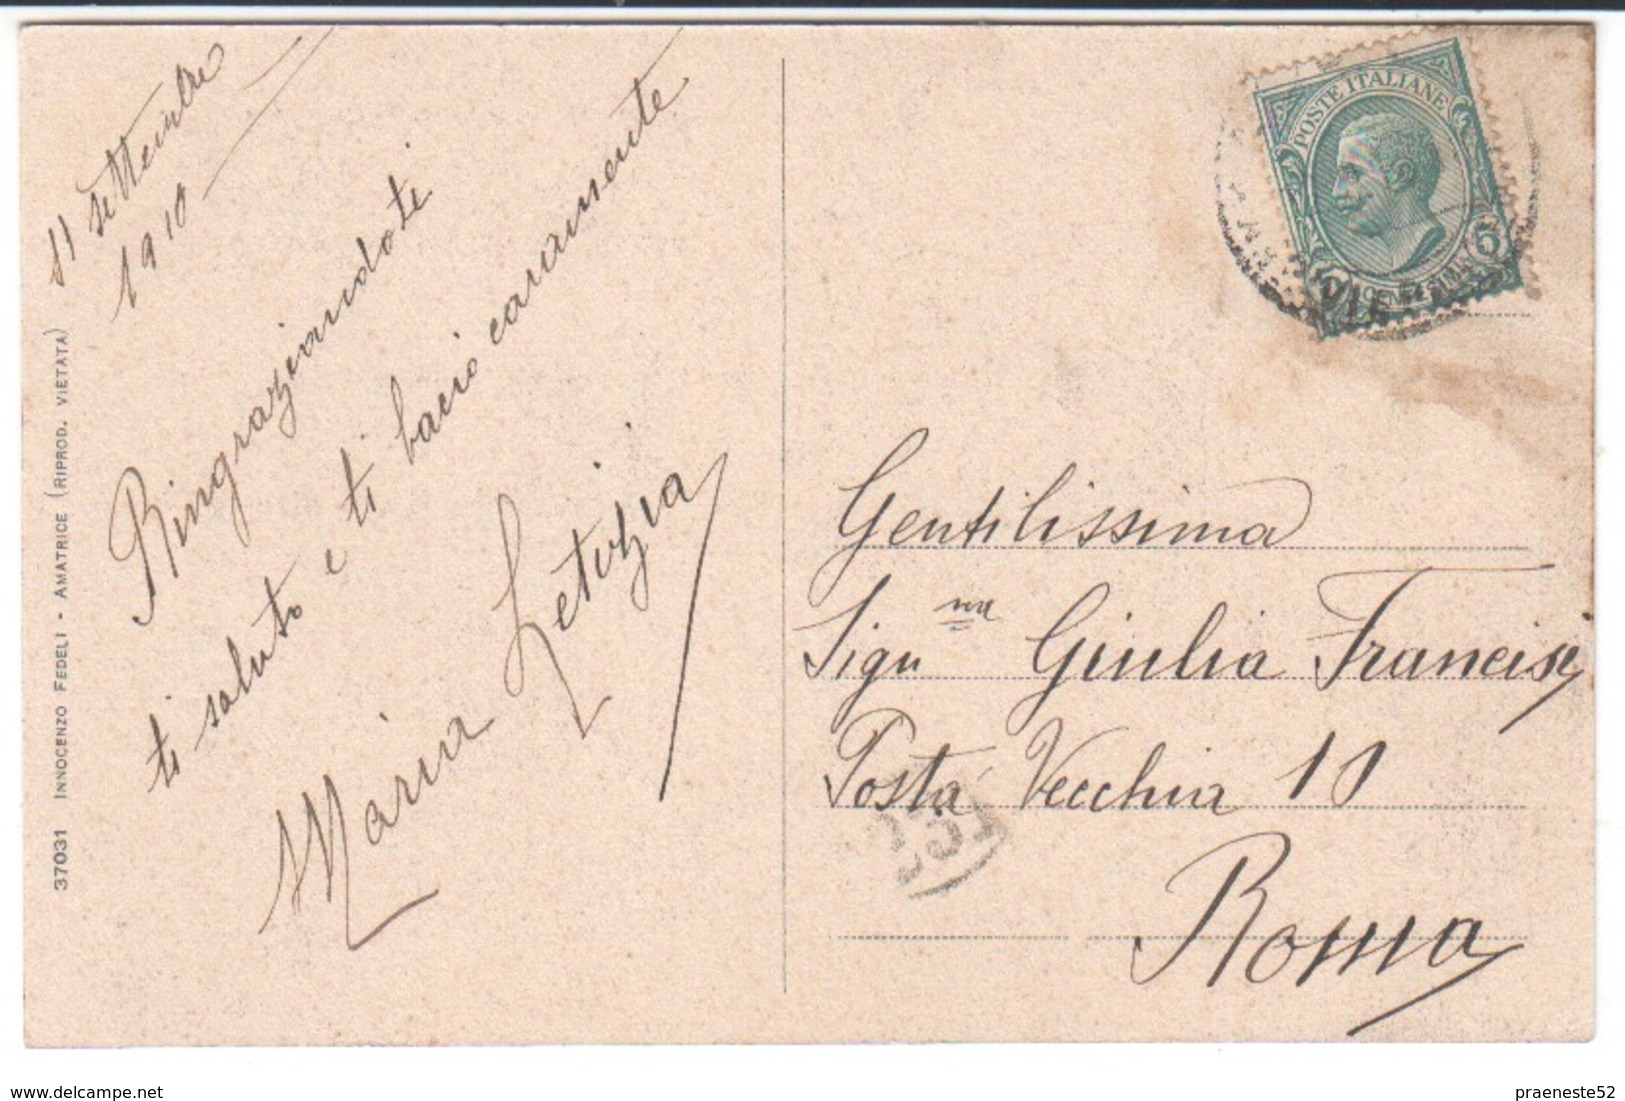 11 settembre
1910
Ringraziandoti
ti saluto e ti bacio caramente
Maria Letizia
37031 INNOCENZO FEDELI - AMATRICE (RIPROD. VIETATA)
POSTE ITALIANE
5 CENTESIMI 5
Gentilissima
Sigu na Giulia Francisi
Posta Vecchia 10
231
Roma
delcampe.net
praeneste52